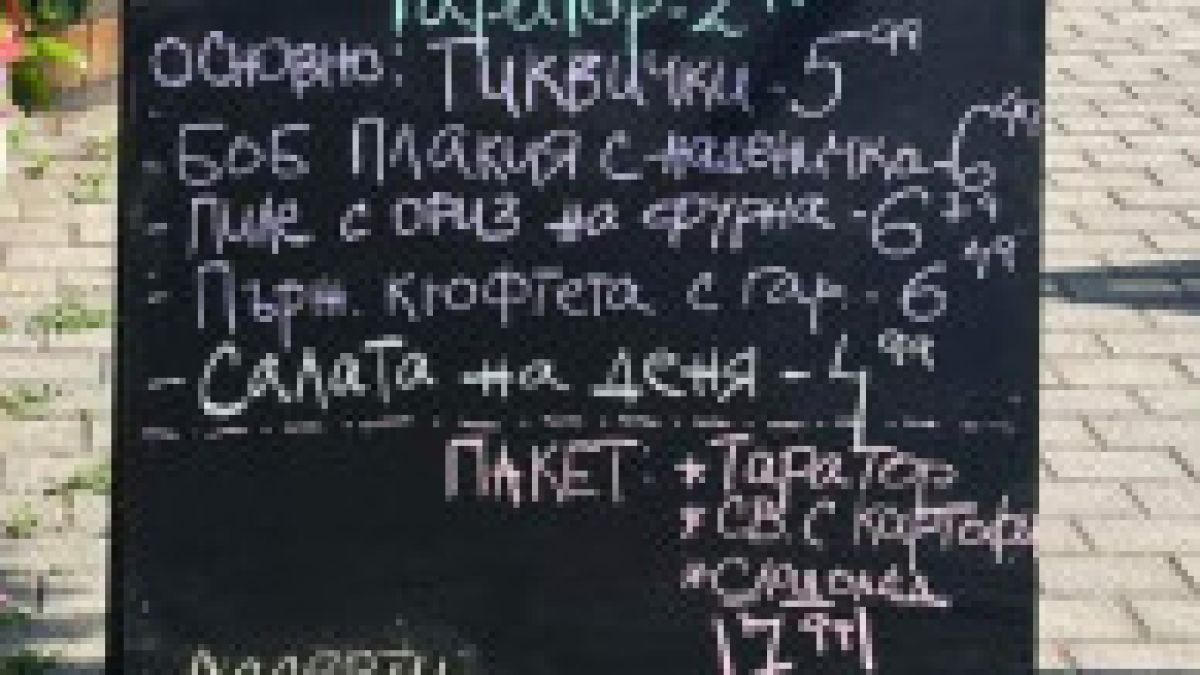 Таратор - 2
Основно: Тиквички - 5 99
- Боб плакия с наденичка - 6 49
- Пиле с ориз на фурна - 6
- Пърж. кюфтета с гар. - 6 49
- Салата на деня - 4 99
ПАКЕТ: * Таратор
* СВ. С картофи
* Сладолед
17 99